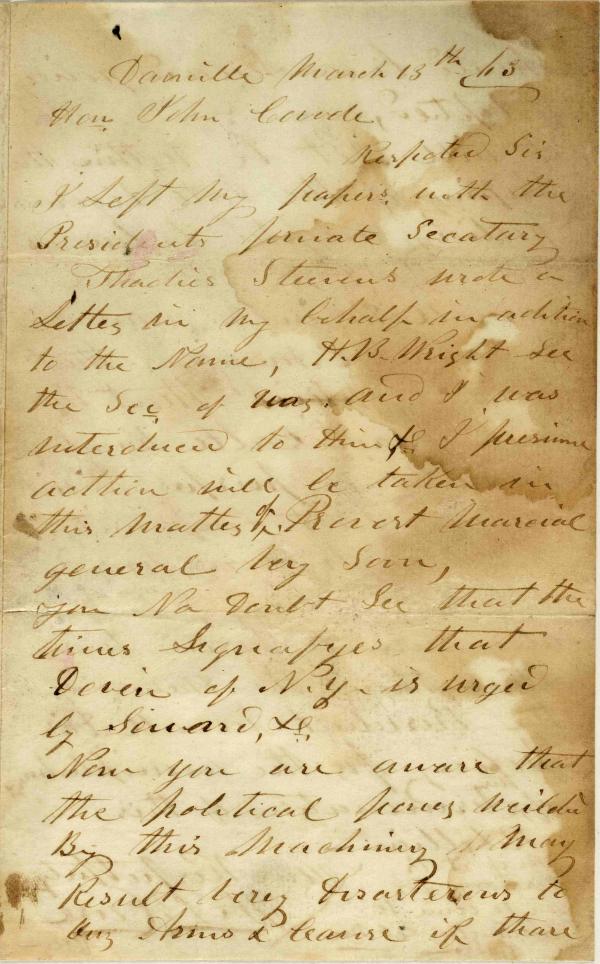 Danville March 13th /63
Hon John Covode
Respected Sir
I Left my papers with the
Presidents private Secatary
Thadies Steevens wrote a
Letter in my behalf in adition
to the Name, H.B. Wright See
the Sec of War. and I was
interduced to Him &c I presume
acttion will be taken in
this matter of Provost Marcial
general very Soon,
you No Doubt See that the
times Signafyes that
of N.Y. is urged
by Seward, &c.
Now you are aware that
the political power
By this Machinery May
Result very Disasterous to
Our Arms & Cause if thare